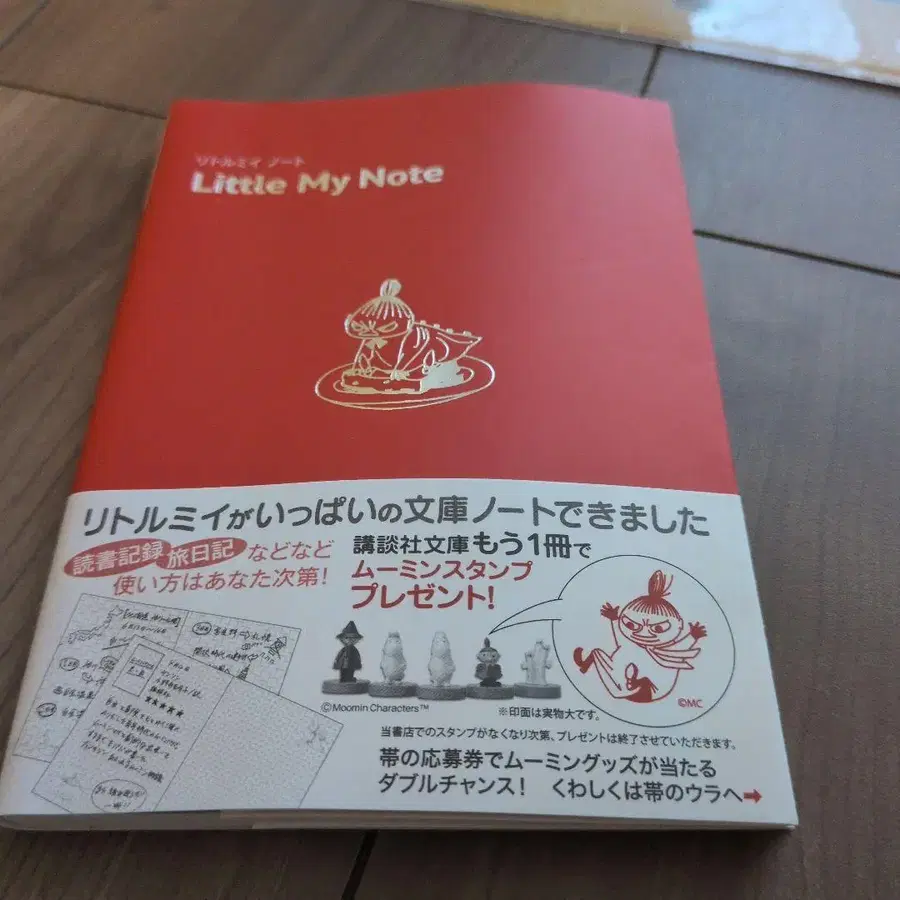 リトルミイ ノート
Little My Note
リトルミイがいっぱいの文庫ノートできました
読書記録 旅日記 などなど
使い方はあなた次第!
講談社文庫もう1冊で
ムーミンスタンプ
プレゼント!
©Moomin Characters™
※印面は実物大です。
©MC
当書店でのスタンプがなくなり次第、プレゼントは終了させていただきます。
帯の応募券でムーミングッズが当たる
ダブルチャンス! くわしくは帯のウラへ➡